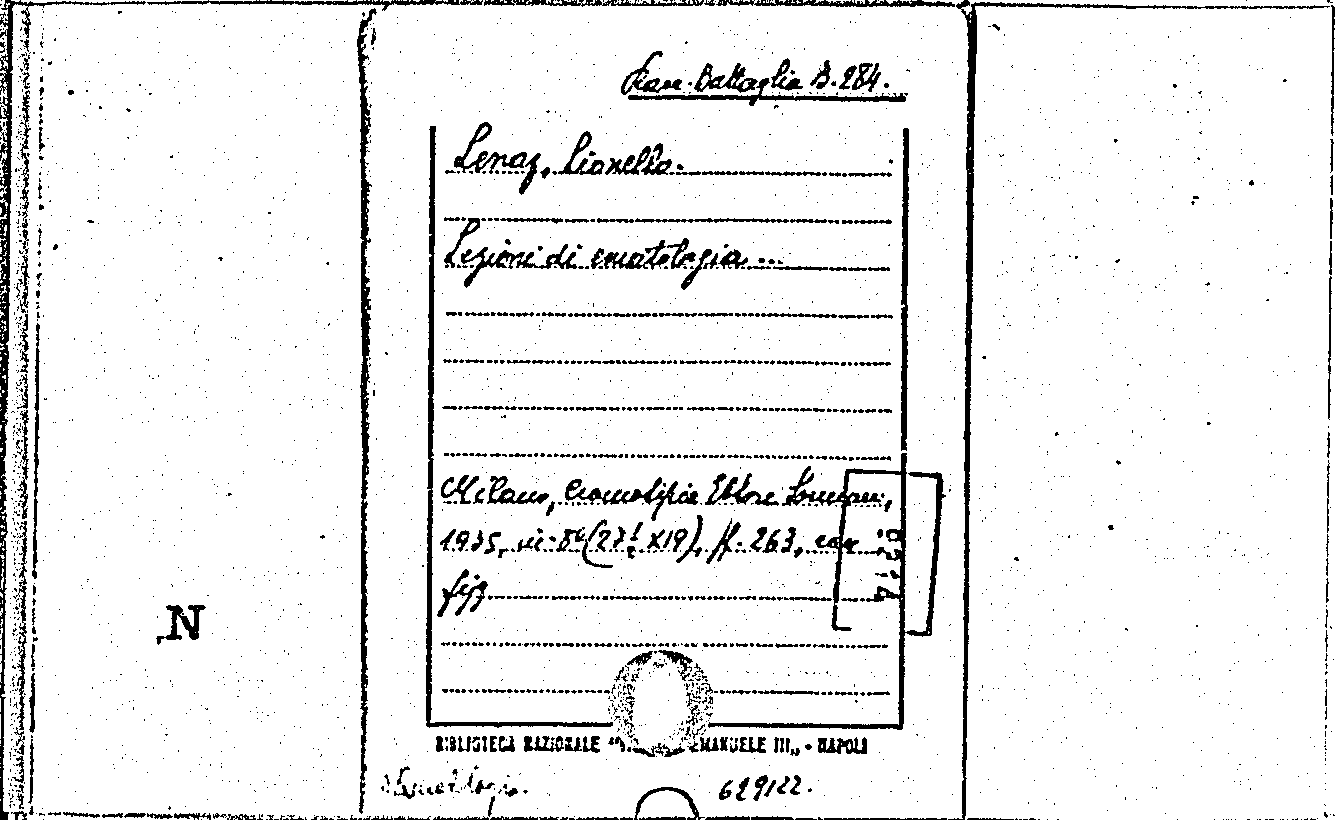 Battaglia B. 284.
Lenaz, Lionello.
Lezioni di ematologia...
Milano, Cromotipia Ettore Sormani,
1935, in-8° (27× XIX), pp. 263, con
figg
N
BIBLIOTECA NAZIONALE "VI EMANUELE III„ - NAPOLI
Ematologia.
629122.